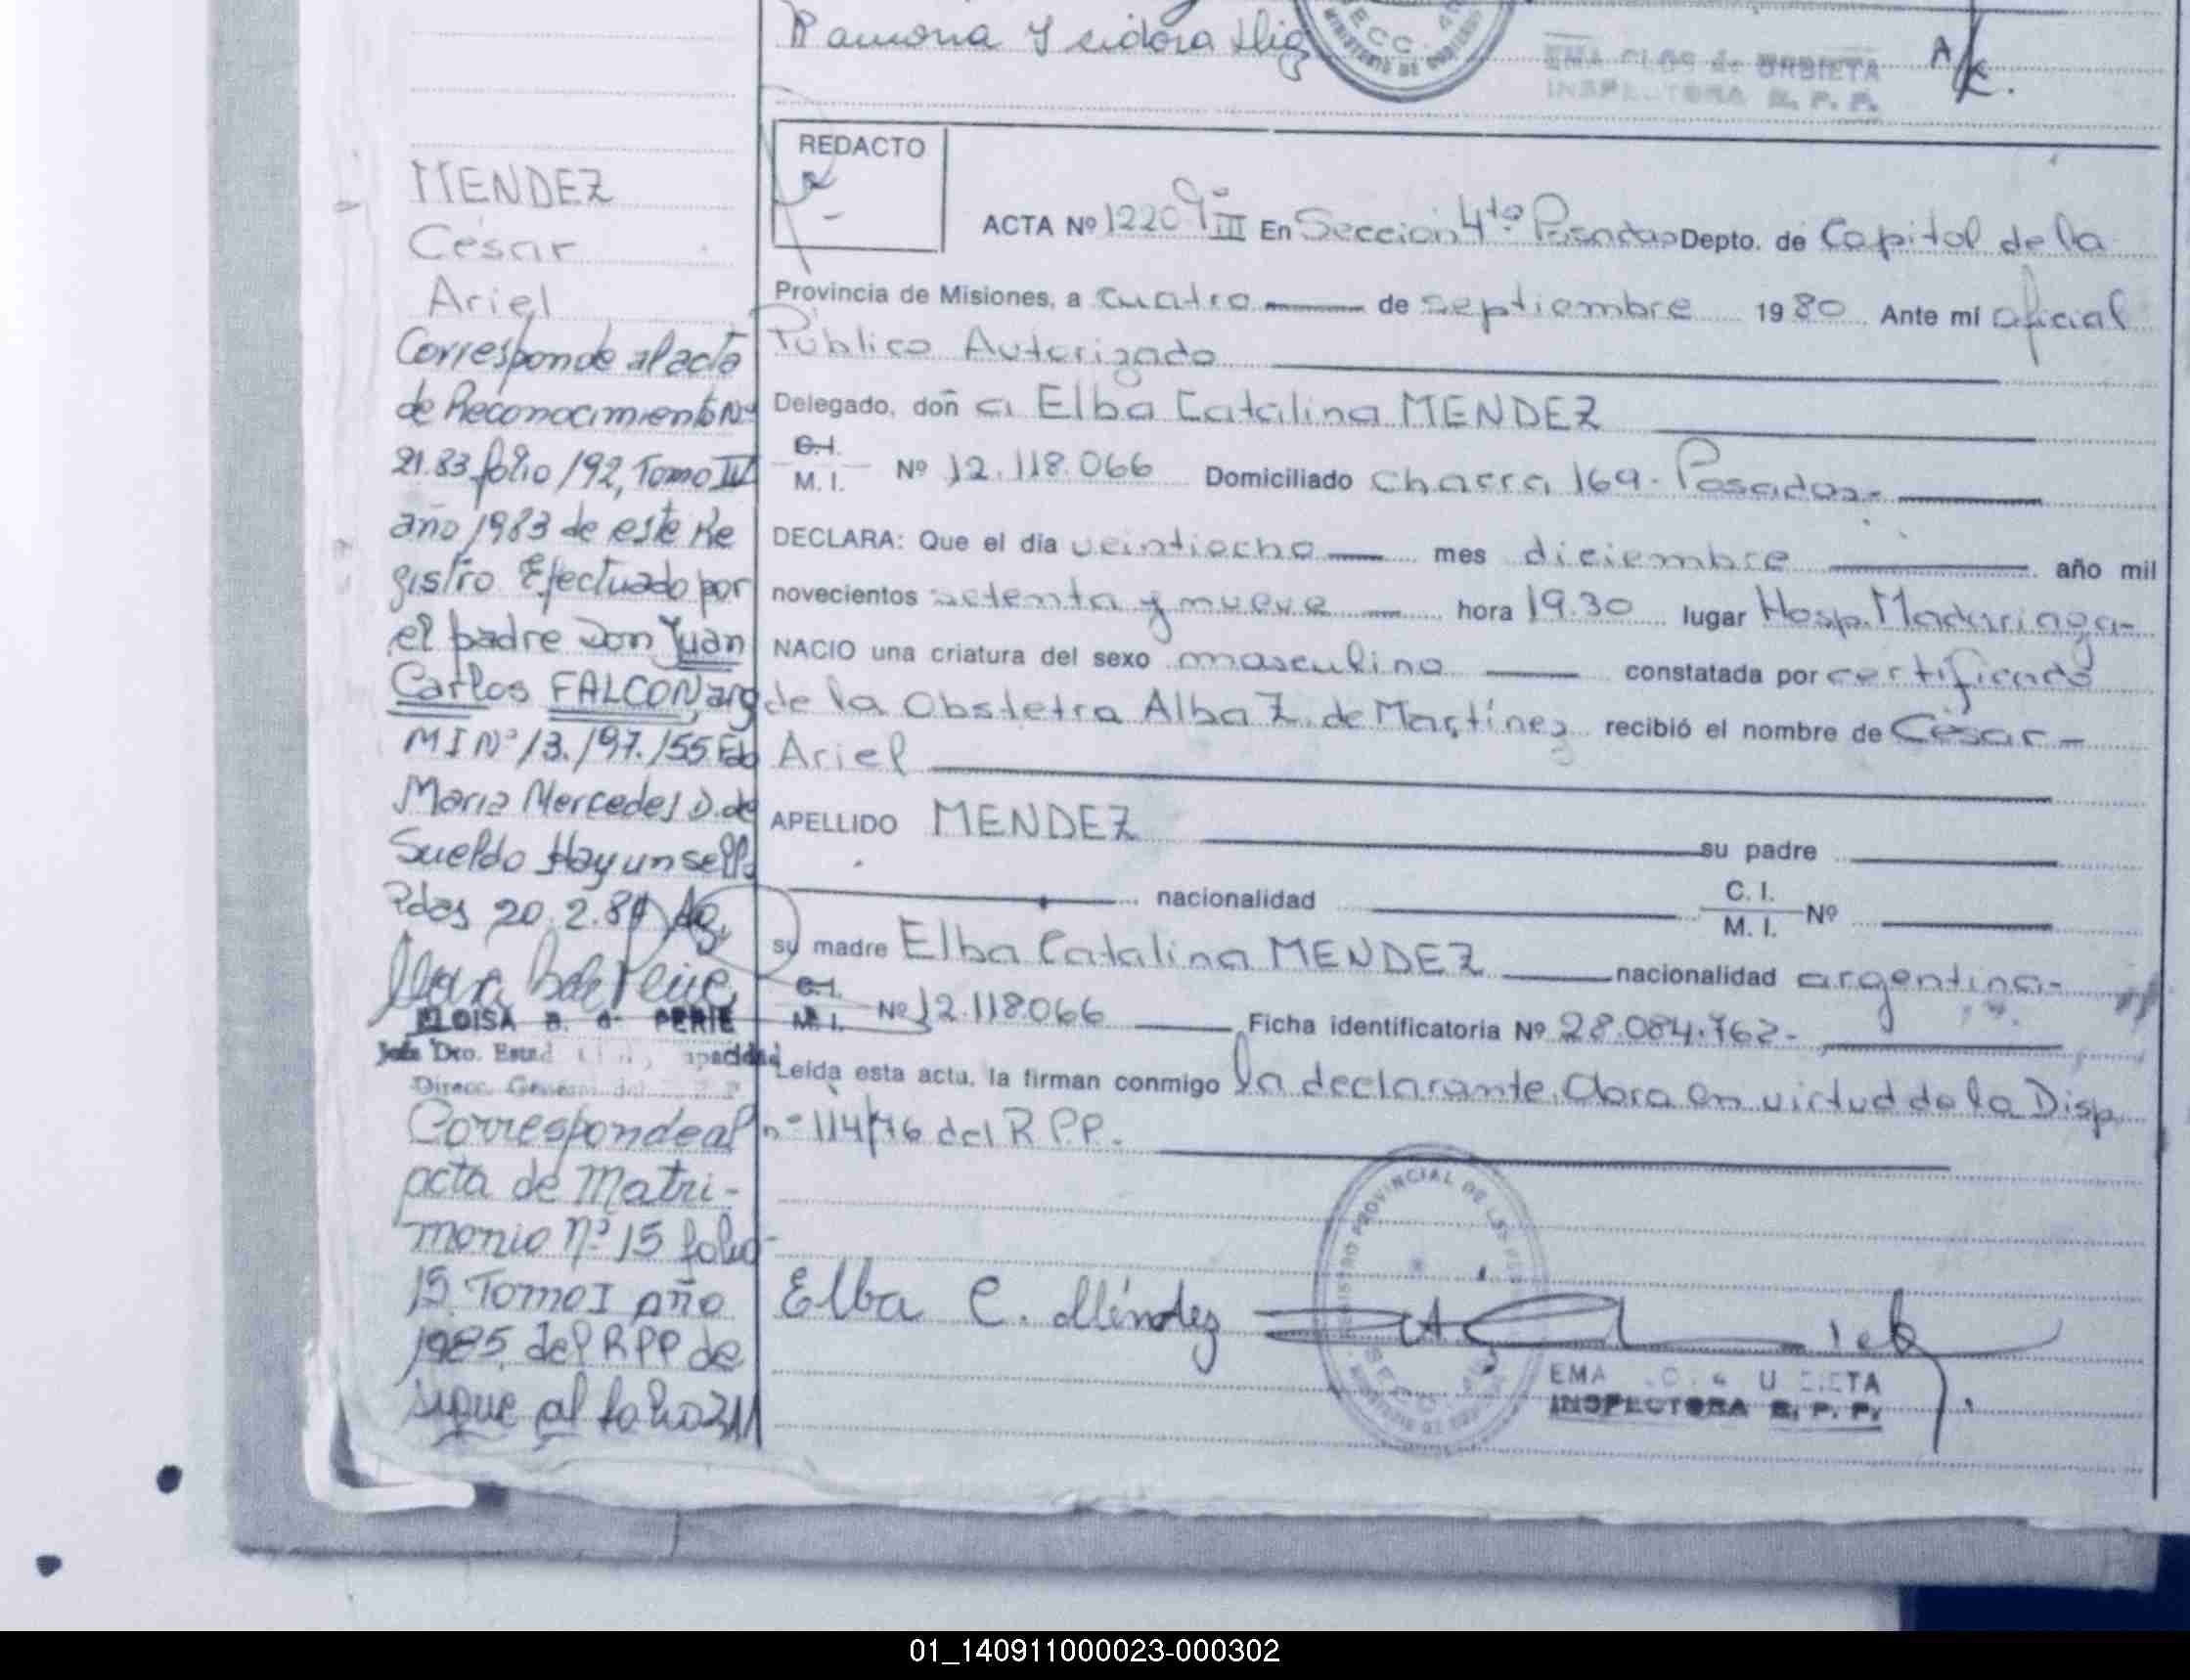 Ramona Ysidora Hig
SECC. 4
MINISTERIO DE GOBIERNO
EMA CLOS de URBIETA
INSPECTORA R. P. P.
MENDEZ
César
Ariel
Corresponde al acta
de Reconocimiento Nº
2183 folio 192, Tomo IV
año 1983 de este Re
gistro Efectuado por
el padre Don Juan
Carlos FALCON, arg
MI Nº 13.197.155 Fdo
Maria Mercedes D. de
Sueldo Hay un sello
Pdas 20.2.84
ELOISA B. de PERIE
Jefe Dto. Estad
Direcc. General del
Corresponde al
acta de Matri-
monio nº 15 folio
15 Tomo I año
1985 del RPP de
sigue al folio 311
REDACTO
ACTA Nº 1220 Tº III En Sección 4ta Posadas Depto. de Capital de la
Provincia de Misiones, a cuatro de septiembre 1980 Ante mí oficial
Público Autorizado
Delegado, doñ a Elba Catalina MENDEZ
C.I.
M. I. Nº 12.118.066 Domiciliado Chacra 169- Posadas-
DECLARA: Que el día veintiocho mes diciembre año mil
novecientos setenta y nueve hora 19.30 lugar Hosp. Madariaga-
NACIO una criatura del sexo masculino constatada por certificado
de la Obstetra Alba Z. de Martínez recibió el nombre de César-
Ariel
APELLIDO MENDEZ su padre
nacionalidad C. I. M. I. Nº
su madre Elba Catalina MENDEZ nacionalidad argentina-
C.I.
M. I. Nº 12.118066 Ficha identificatoria Nº 28.084.762-
Leída esta acta, la firman conmigo la declarante. Obra en virtud de la Disp.
nº 114/76 del R P.P.
Elba C. Méndez
REGISTRO PROVINCIAL DE LAS PERSONAS
SECC. 4
MINISTERIO DE GOBIERNO
EMA U ETA
INSPECTORA R. P. P.
01_140911000023-000302